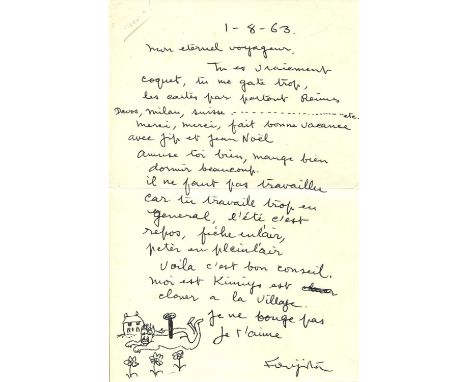 1-8-63.
mon eternel voyageur.
Tu es vraiement
coquet, tu me gate trop,
les cartes par partout Reims
Davos, Milan, suisse ............ etc.
merci, merci, fait bonne vacance
avec Jip et Jean Noël
amuse toi bien, mange bien
dormir beaucoup.
il ne faut pas travailler
car tu travaile trop en
general, l'été c'est
repos, fiche en l'air,
peter en pleinl'air
Voila c'est bon conseil.
moi est Kimiyo est
clouer a la village.
Je ne bouge pas
Je t'aime
Foujita